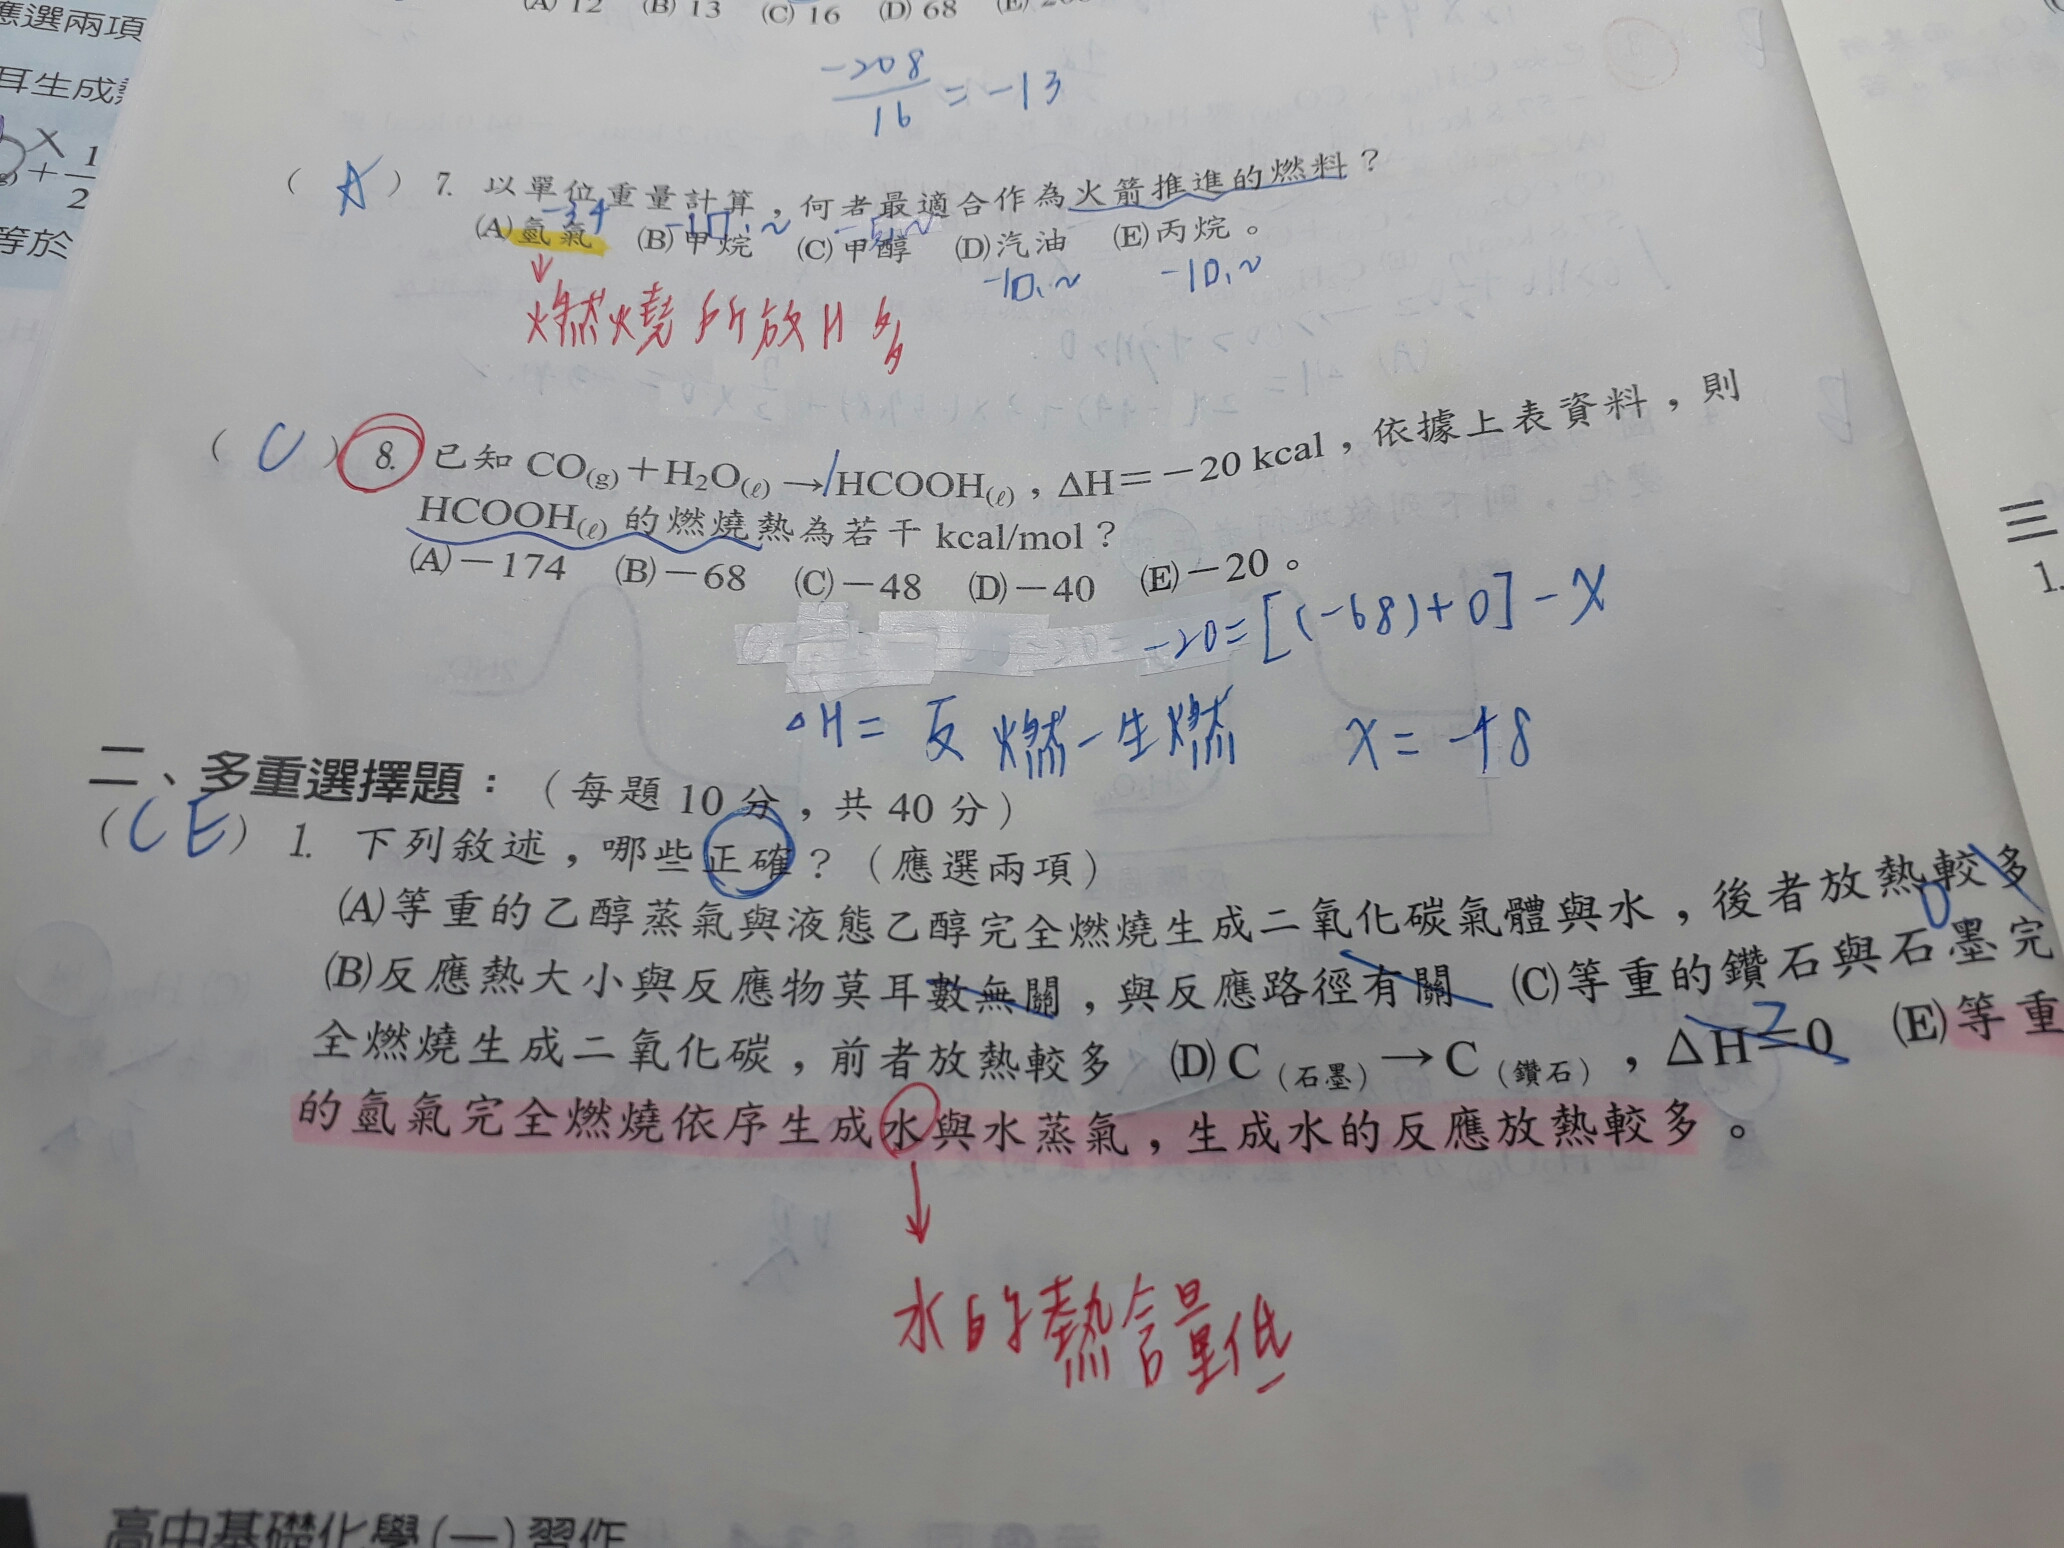 應選兩項
耳生成
等於
(A) 12 (B) 13 (C) 16 (D) 68
-208/16 = -13
( A ) 7. 以單位重量計算,何者最適合作為火箭推進的燃料?
-34 -10.~
(A)氫氣 (B)甲烷 (C)甲醇 (D)汽油 (E)丙烷。
-10.~ -10.~
燃燒所放H多
( C ) 8. 已知 CO(g)+H2O(ℓ)→HCOOH(ℓ),ΔH=-20 kcal,依據上表資料,則
HCOOH(ℓ) 的燃燒熱為若干 kcal/mol?
(A)-174 (B)-68 (C)-48 (D)-40 (E)-20。
-20=[(-68)+0]-X
ΔH= 反燃-生燃 X=-48
二、多重選擇題:(每題 10 分,共 40 分)
( CE ) 1. 下列敘述,哪些正確?(應選兩項)
(A)等重的乙醇蒸氣與液態乙醇完全燃燒生成二氧化碳氣體與水,後者放熱較多
(B)反應熱大小與反應物莫耳數無關,與反應路徑有關 (C)等重的鑽石與石墨完
全燃燒生成二氧化碳,前者放熱較多 (D) C (石墨)→C (鑽石),ΔH=0 (E)等重
的氫氣完全燃燒依序生成水與水蒸氣,生成水的反應放熱較多。
水的熱含量低
高中基礎化學(一)習作
三
1.